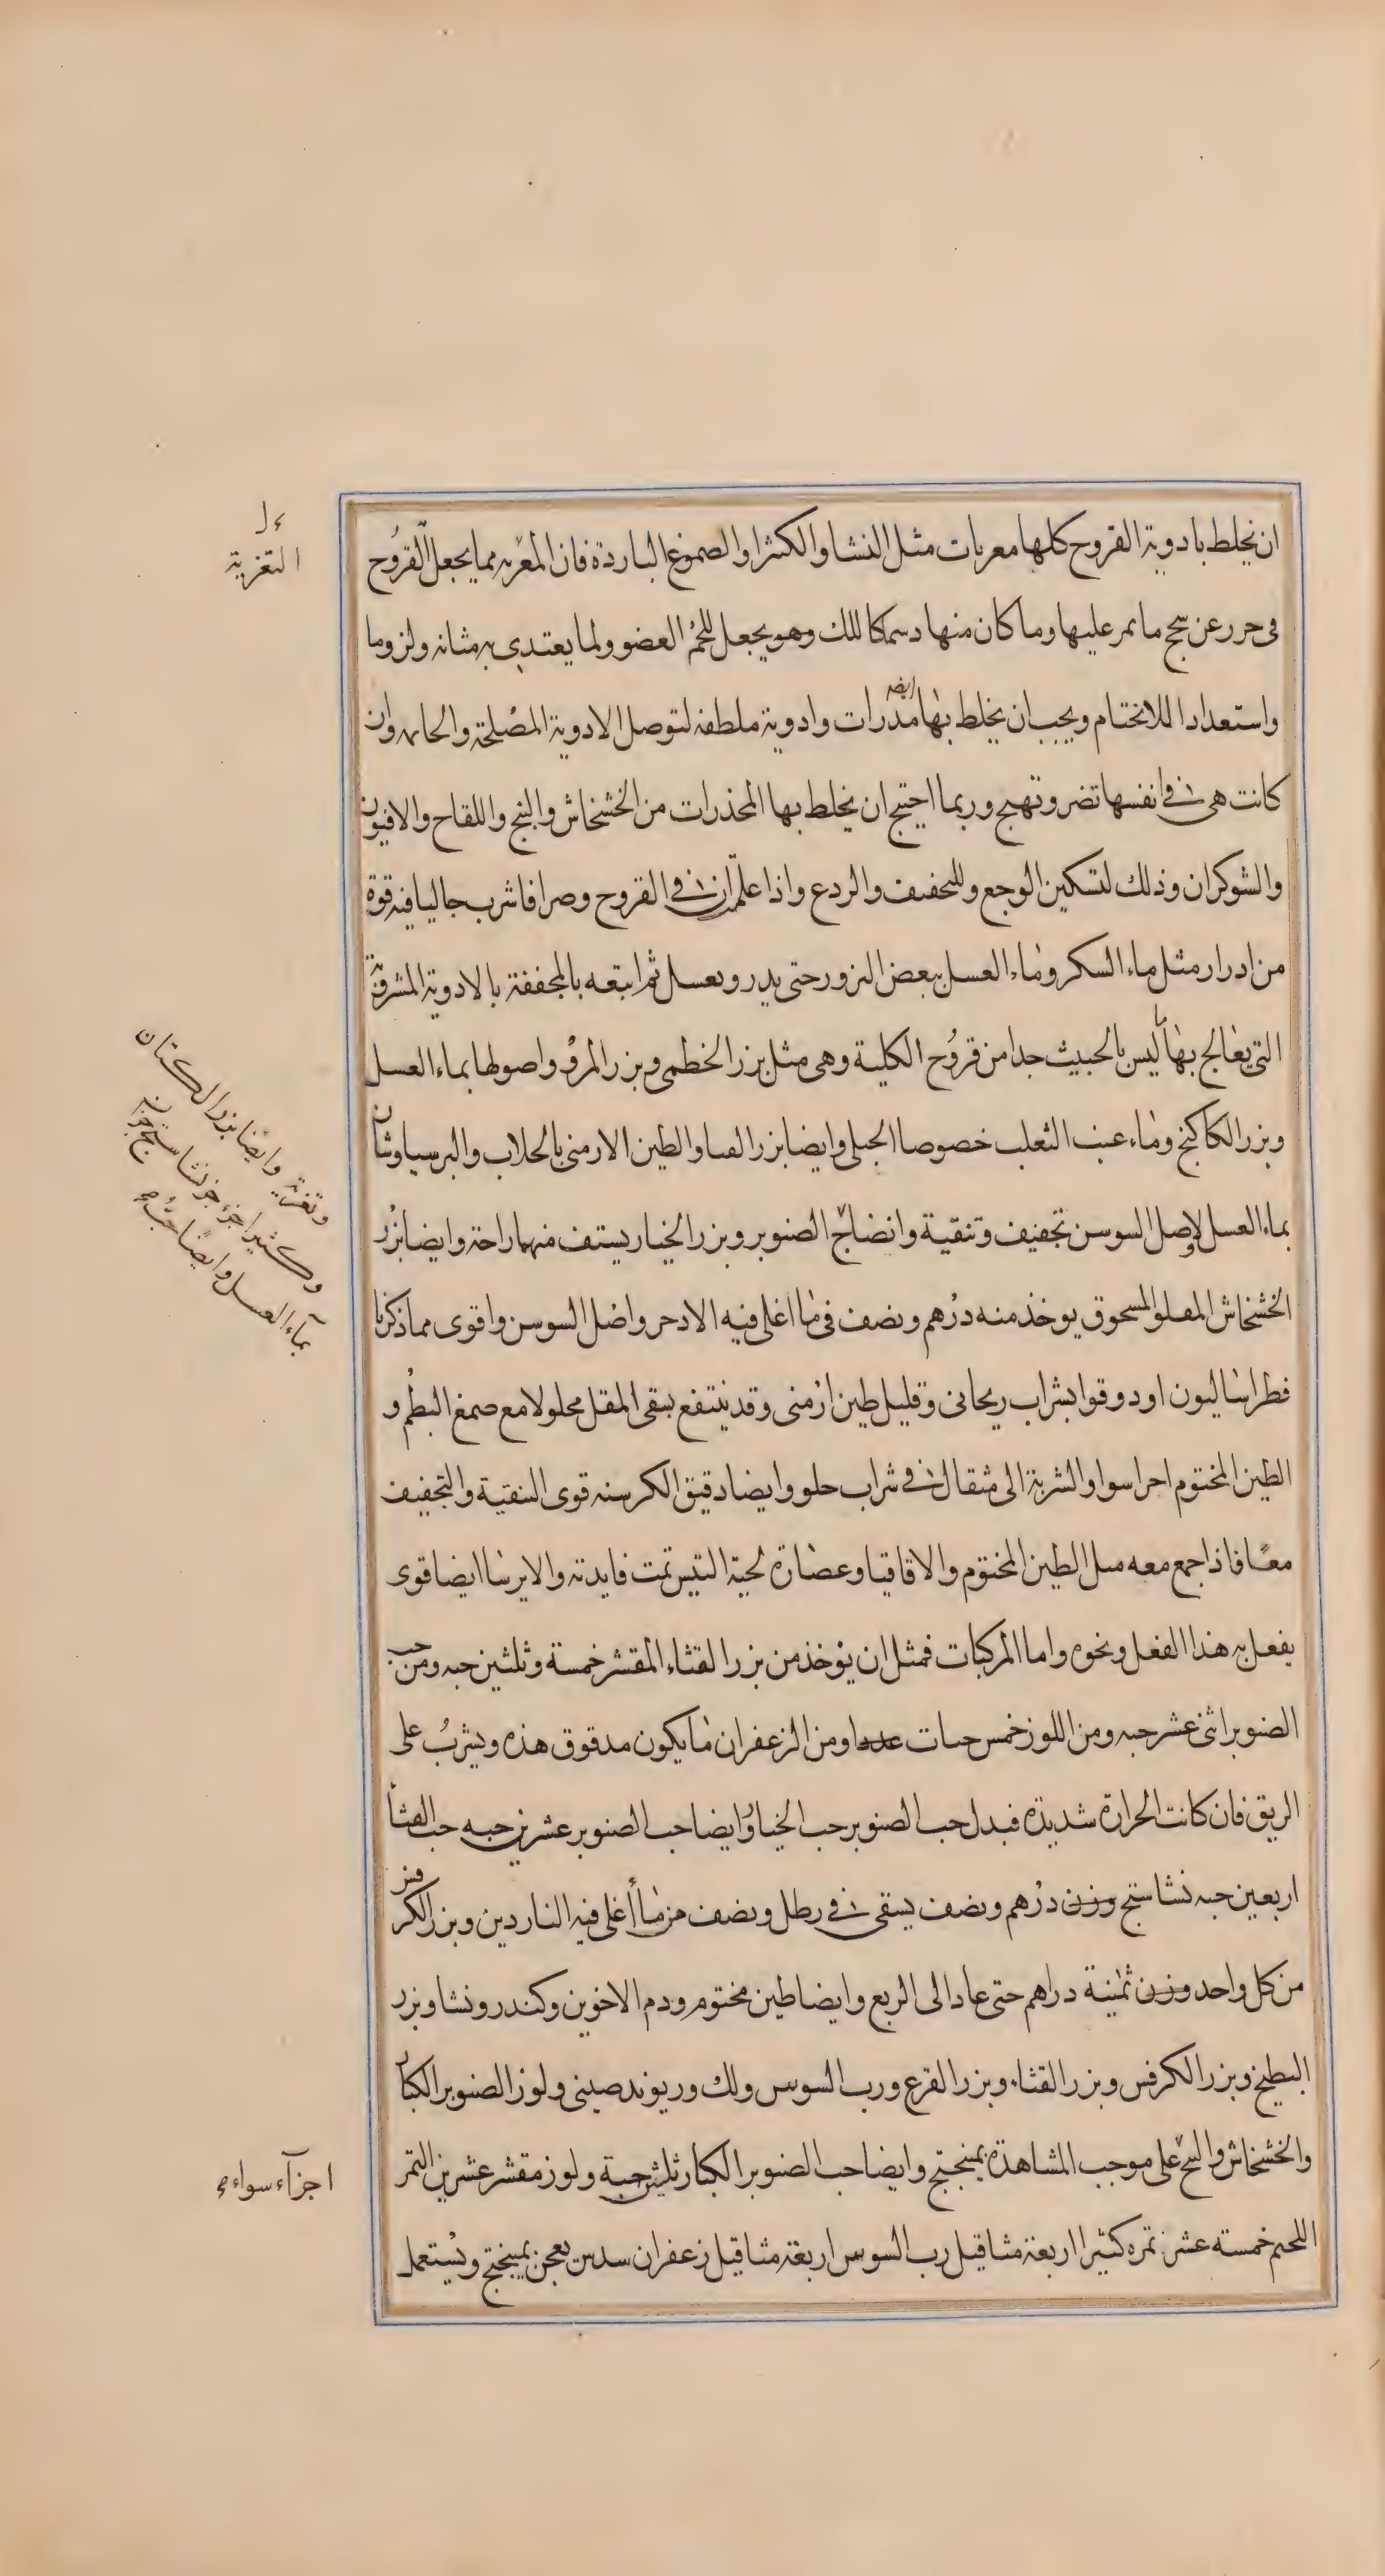 ان يخلط بادوية القروح كلها معريات مثل النشا والكثيرا والصموغ الباردة فان المغريه مما يجعل القروح
فى حرز عن سحج ما يمر عليها وما كان منها دسمكا للك وهو يجعل للحم العضو ولما يعتدى به متانه ولزوما
واستعدادا للالتحام ويجب ان يخلط بها ايضه مدرات وادوية ملطفه لتوصل الادوية المصلحة والحاىه وان
كانت هى فى انفسها تضر وتهيج وربما احتيج ان يخلط بها المخذرات من الخشخاش والبنج واللقاح والافيون
والشوكران وذلك لتسكين الوجع وللتجفيف والردع واذا علم ان فى القروح وصرا فاشرب جاليا فيه قوة
من ادرار مثل ماء السكر وماء العسل ببعض البزور حتى يدر ويغسل ثم اتبعه بالمجففة بالادوية المشرقية
التى يعالج بها ما ليس بالخبيث جدا من قروح الكلية وهى مثل بزر الخطمى وبزر المرو واصولها بماء العسل
وبزر الكاكنج وماء عنب الثعلب خصوصا الجبلى وايضا بزر القثا والطين الارمنى بالجلاب والبرسياوشان
بماء العسل لاصل السوسن تجفيف وتنقية وانضاج الصنوبر وبزر الخيار يستف منهما راحة وايضا بزر
الخشخاش المقلو المسحوق يوخذ منه درهم ونصف فى ما اغلى فيه الادخر واصل السوسن واقوى مما ذكرنا
فطراساليون او دوقوا بشراب ريحانى وقليل طين ارمنى وقد ينتفع بسقى المقل محلولا مع صمغ البطم و
الطين المختوم اجزا سوا والشربة الى مثقال فى شراب حلو وايضا دقيق الكرسنه قوى التنقية والتجفيف
معًا فاذا جمع معه مثل الطين المختوم والاقاقيا وعصارة لحية التيس تمت فايدته والايرسا ايضا قوى
يفعل به هذا الفعل ونحوه واما المركبات فمثل ان يوخذ من بزر القثاء المقشر خمسة وثلثين حبه ومن حب
الصنوبر اثنى عشر حبه ومن اللوز خمس حبات عددا ومن الزعفران ما يكون مدقوق هذه ويشرب على
الريق فان كانت الحرارة شديدة فبدل حب الصنوبر حب الخيار وايضا حب الصنوبر عشرين حبه حب القثا
اربعين حبه نشاستج وزن درهم ونصف يسقى فى رطل ونصف من ما أغلى فيه الناردين وبزر الكرفس
من كل واحد وزن ثمنية دراهم حتى عاد الى الربع وايضا طين مختوم ودم الاخوين وكندر ونشا وبزر
البطيخ وبزر الكرفس وبزر القثاء وبزر القرع ورب السوس ولك وريوند صينى ولوز الصنوبر الكبار
والخشخاش والبنج على موجب المشاهدة بمبيختج وايضا حب الصنوبر الكبار ثلثين حبة ولوز مقشر عشرين التمر
اللحيم خمسة عشر تمره كثيرا اربعة مثاقيل رب السوس اربعة مثاقيل زعفران سدس يعجن بميبختج ويستعمل
التغرية
وتغرية وايضا بزر الكتان
وكثيرا جزء جز نشاستج جزان
بماء العسل وايضا حب
اجزآء سواء